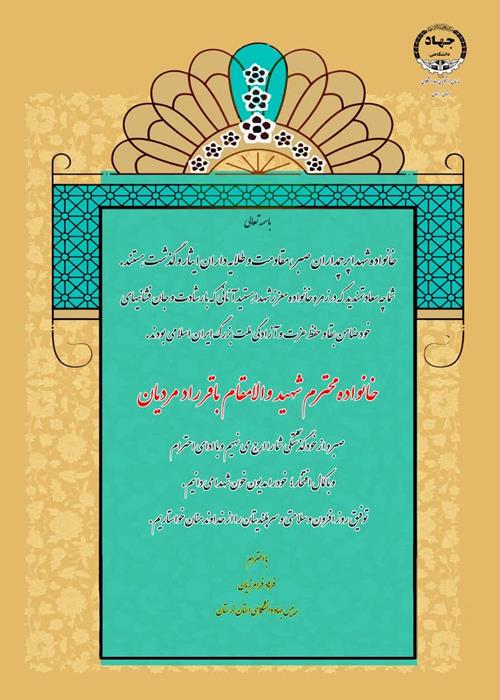 جهاد
دانشگاهی
باسمه تعالی
خانواده شهدا پرچمداران صبر، مقاومت و طلایه داران ایثار و گذشت هستند.
شما چه سعادتمندید که در زمره خانواده معزز شهدا هستید آنانی که با رشادت و جان فشانیهای
خود ضامن بقا و حفظ عزت و آزادگی ملت بزرگ ایران اسلامی بودند.
خانواده محترم شهید والامقام باقر راد مردیان
صبر و از خودگذشتگی شما را ارج می نهیم و با ادای احترام
و با کمال افتخار، خود را مدیون خون شهدا می دانیم.
توفیق روز افزون و سلامتی و سربلندیتان را از خداوند منان خواستاریم.
با احترام
فرهاد فرامرزیان
رییس جهاددانشگاهی استان لرستان